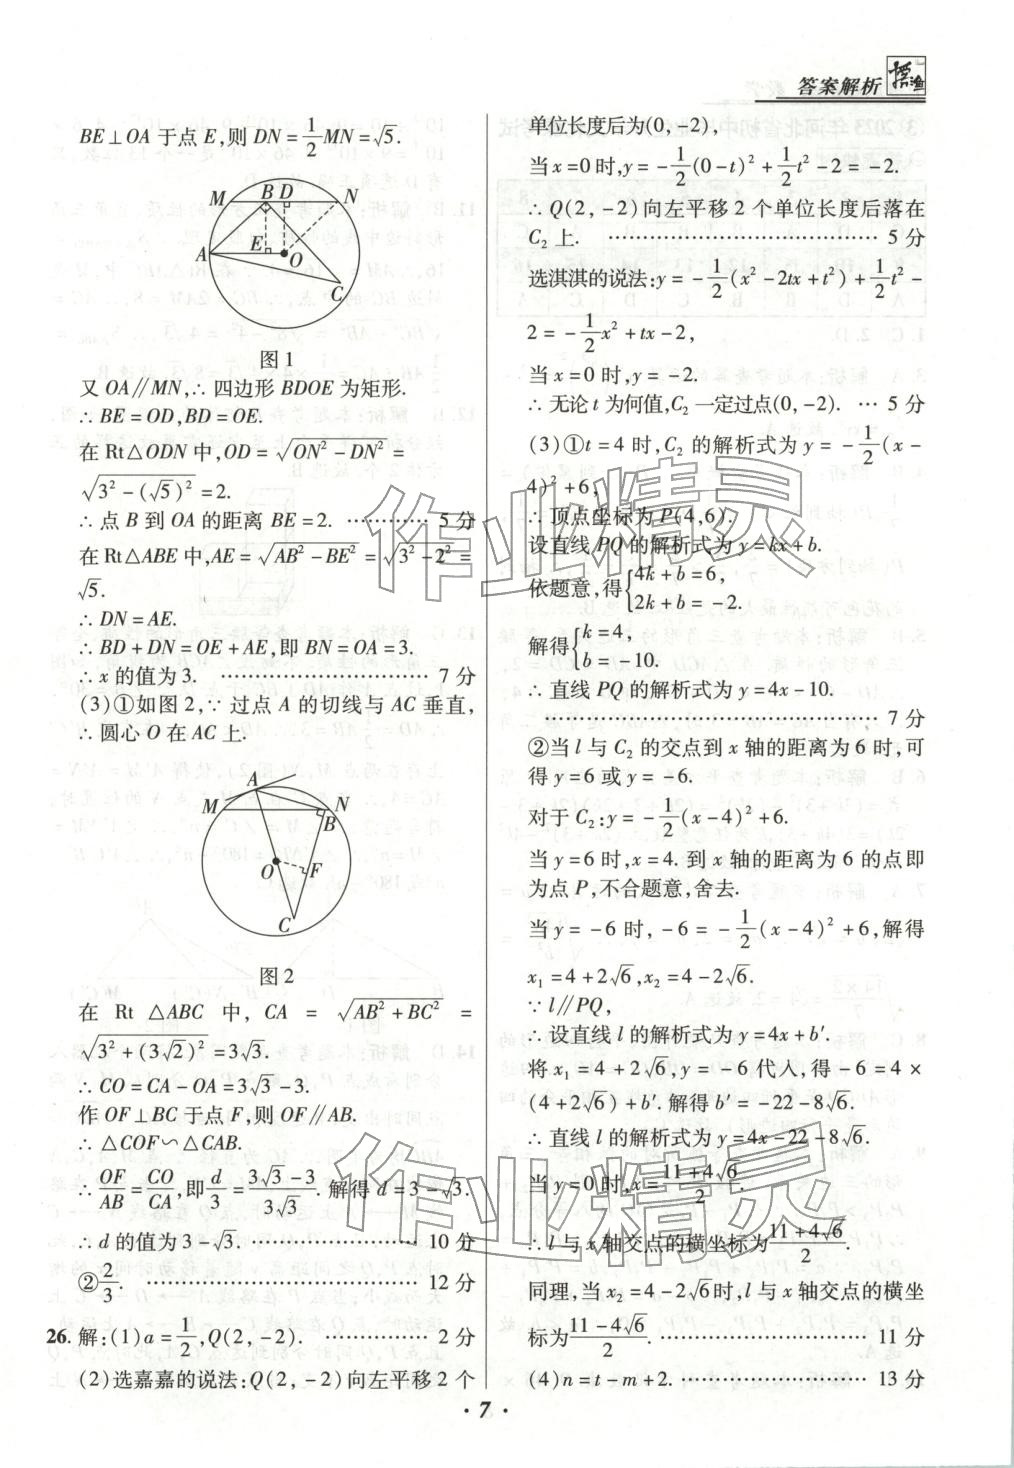 答案解析
BE⊥OA 于点 E,则 DN=1/2MN=√5.
M B D N
A E O
C
图 1
又 OA∥MN,∴ 四边形 BDOE 为矩形.
∴ BE=OD,BD=OE.
在 Rt△ODN 中,OD=√(ON²-DN²)=
√(3²-(√5)²)=2.
∴ 点 B 到 OA 的距离 BE=2. ………… 5 分
在 Rt△ABE 中,AE=√(AB²-BE²)=√(3²-2²)=
√5.
∴ DN=AE.
∴ BD+DN=OE+AE,即 BN=OA=3.
∴ x 的值为 3. ………………………… 7 分
(3)①如图 2,∵ 过点 A 的切线与 AC 垂直,
∴ 圆心 O 在 AC 上.
A
M N
B
O F
C
图 2
在 Rt △ABC 中, CA = √(AB²+BC²) =
√(3²+(3√2)²)=3√3.
∴ CO=CA-OA=3√3-3.
作 OF⊥BC 于点 F,则 OF∥AB.
∴ △COF∽△CAB.
∴ OF/AB=CO/CA,即 d/3=(3√3-3)/(3√3). 解得 d=3-√3.
∴ d 的值为 3-√3. …………………… 10 分
②2/3. ………………………………… 12 分
26. 解:(1)a=1/2,Q(2,-2). …………… 2 分
(2)选嘉嘉的说法:Q(2,-2)向左平移 2 个
单位长度后为(0,-2),
当 x=0 时,y=-1/2(0-t)²+1/2t²-2=-2.
∴ Q(2,-2)向左平移 2 个单位长度后落在
C₂ 上. ……………………………… 5 分
选淇淇的说法:y=-1/2(x²-2tx+t²)+1/2t²-
2=-1/2x²+tx-2,
当 x=0 时,y=-2.
∴ 无论 t 为何值,C₂ 一定过点(0,-2). … 5 分
(3)①t=4 时,C₂ 的解析式为 y=-1/2(x-
4)²+6,
∴ 顶点坐标为 P(4,6).
设直线 PQ 的解析式为 y=kx+b.
依题意,得{4k+b=6,
2k+b=-2.
解得{k=4,
b=-10.
∴ 直线 PQ 的解析式为 y=4x-10.
……………………………………… 7 分
②当 l 与 C₂ 的交点到 x 轴的距离为 6 时,可
得 y=6 或 y=-6.
对于 C₂:y=-1/2(x-4)²+6.
当 y=6 时,x=4. 到 x 轴的距离为 6 的点即
为点 P,不合题意,舍去.
当 y=-6 时,-6=-1/2(x-4)²+6,解得
x₁=4+2√6,x₂=4-2√6.
∵ l∥PQ,
∴ 设直线 l 的解析式为 y=4x+b′.
将 x₁=4+2√6,y=-6 代入,得-6=4×
(4+2√6)+b′. 解得 b′=-22-8√6.
∴ 直线 l 的解析式为 y=4x-22-8√6.
当 y=0 时,x=(11+4√6)/2.
∴ l 与 x 轴交点的横坐标为(11+4√6)/2.
同理,当 x₂=4-2√6时,l 与 x 轴交点的横坐
标为(11-4√6)/2. ………………………… 11 分
(4)n=t-m+2. ……………………… 13 分
· 7 ·
作业精灵
作业精灵